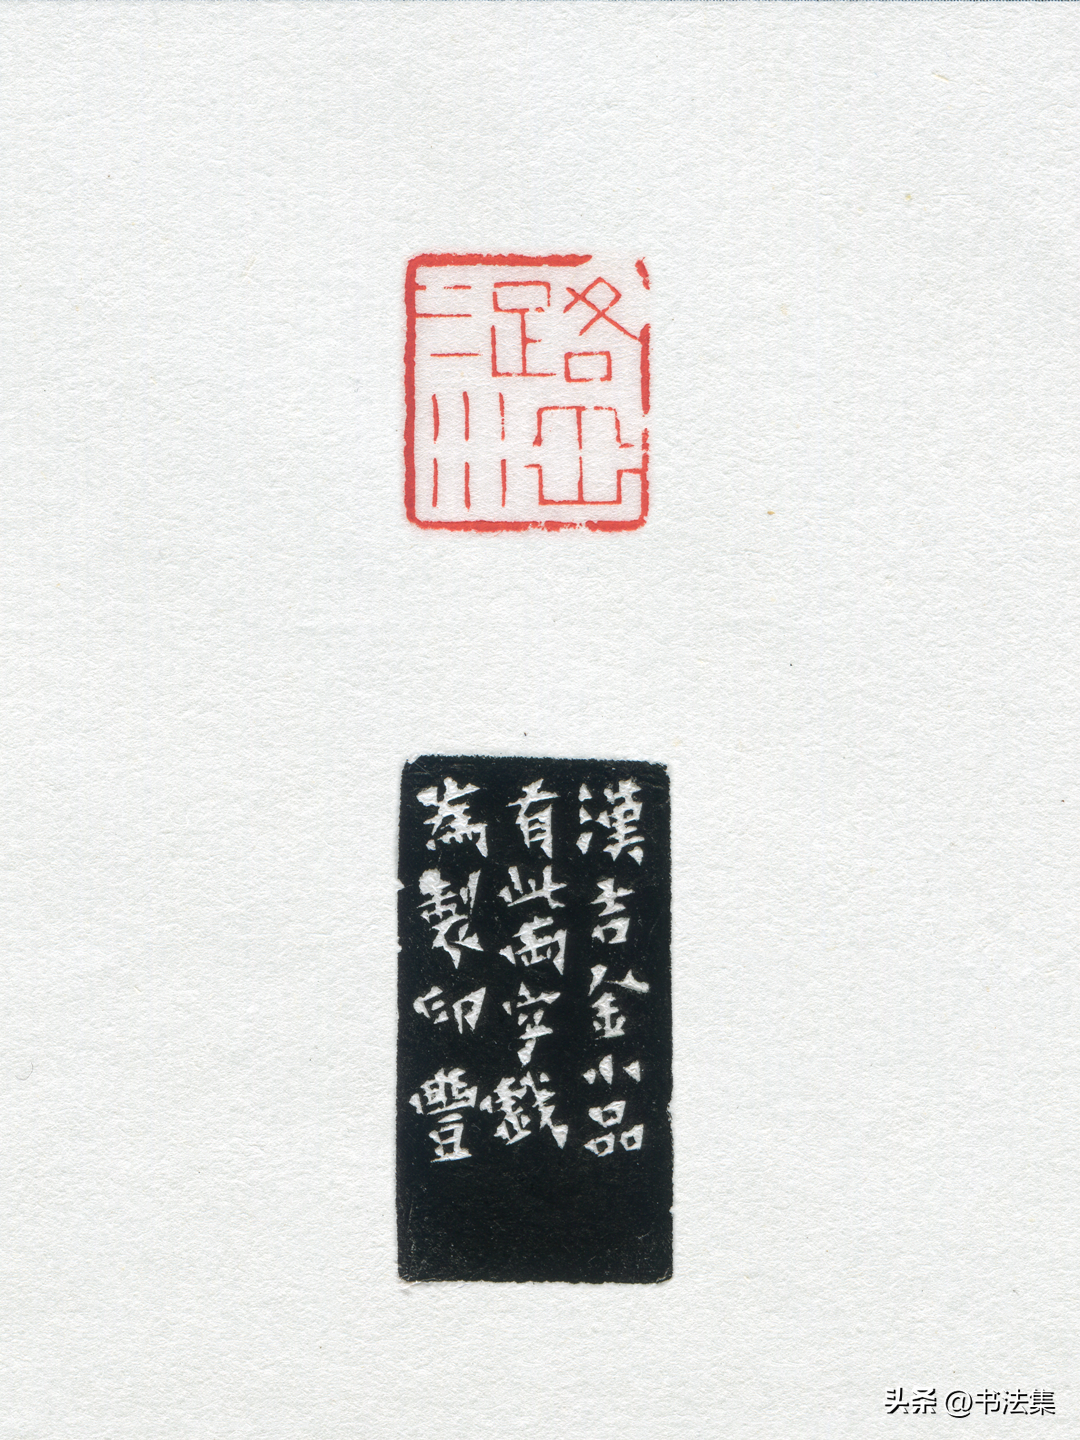 漢吉金小品
有此兩字戲
為製印豐
头条 @书法集